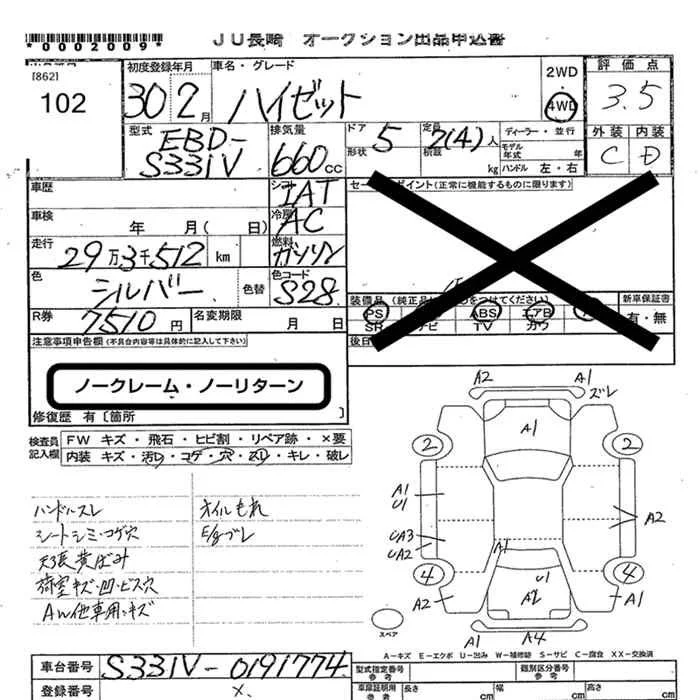 *0002009*
JU長崎 オークション出品申込書
[862]
102
初度登録年月
30 2月
車名・グレード
ハイゼット
2WD
4WD
評価点
3.5
型式
EBD-
S331V
排気量
660cc
ドア
5
形状
定員
2(4)人
積載
kg
ディーラー・並行
モデル年式 年
ハンドル 左・右
外装 内装
C D
車歴
シフト
IAT
セールスポイント(正常に機能するものに限ります)
車検
年 月( 日)
冷房
AC
走行
29万3千512 km
燃料
ガソリン
色
シルバー
色替
色コード
S28
装備品
新車保証書
有・無
PS ABS エアB
SR ナビ TV カワ
R券
7510円
名変期限
月 日
後日
注意事項申告欄(不具合内容等は具体的に記入して下さい)
ノークレーム・ノーリターン
修復歴 有〔箇所 〕
検査員
記入欄
FW キズ・飛石・ヒビ割・リペア跡・×要
内装 キズ・汚レ・コゲ・穴・スレ・キレ・破レ
ハンドルスレ
シートシミ・コゲ穴
天張黄ばみ
荷室キズ・凹・ビス穴
AW他車用・キズ
オイルもれ
E/gブレ
A2 A1
ズレ
A1
2 2
A1
U1
A2
UA3
UA2
A1
4 4
U1
A2
A2 A1
A1 A4
スペア
A-キズ E-エクボ U-凹み W-補修跡 S-サビ C-腐食 XX-交換済
車台番号
S331V-0191774
登録番号
×
型式指定番号
参考
類別区分番号
参考
車庫証明用
参考
長さ cm
幅 cm
高さ cm